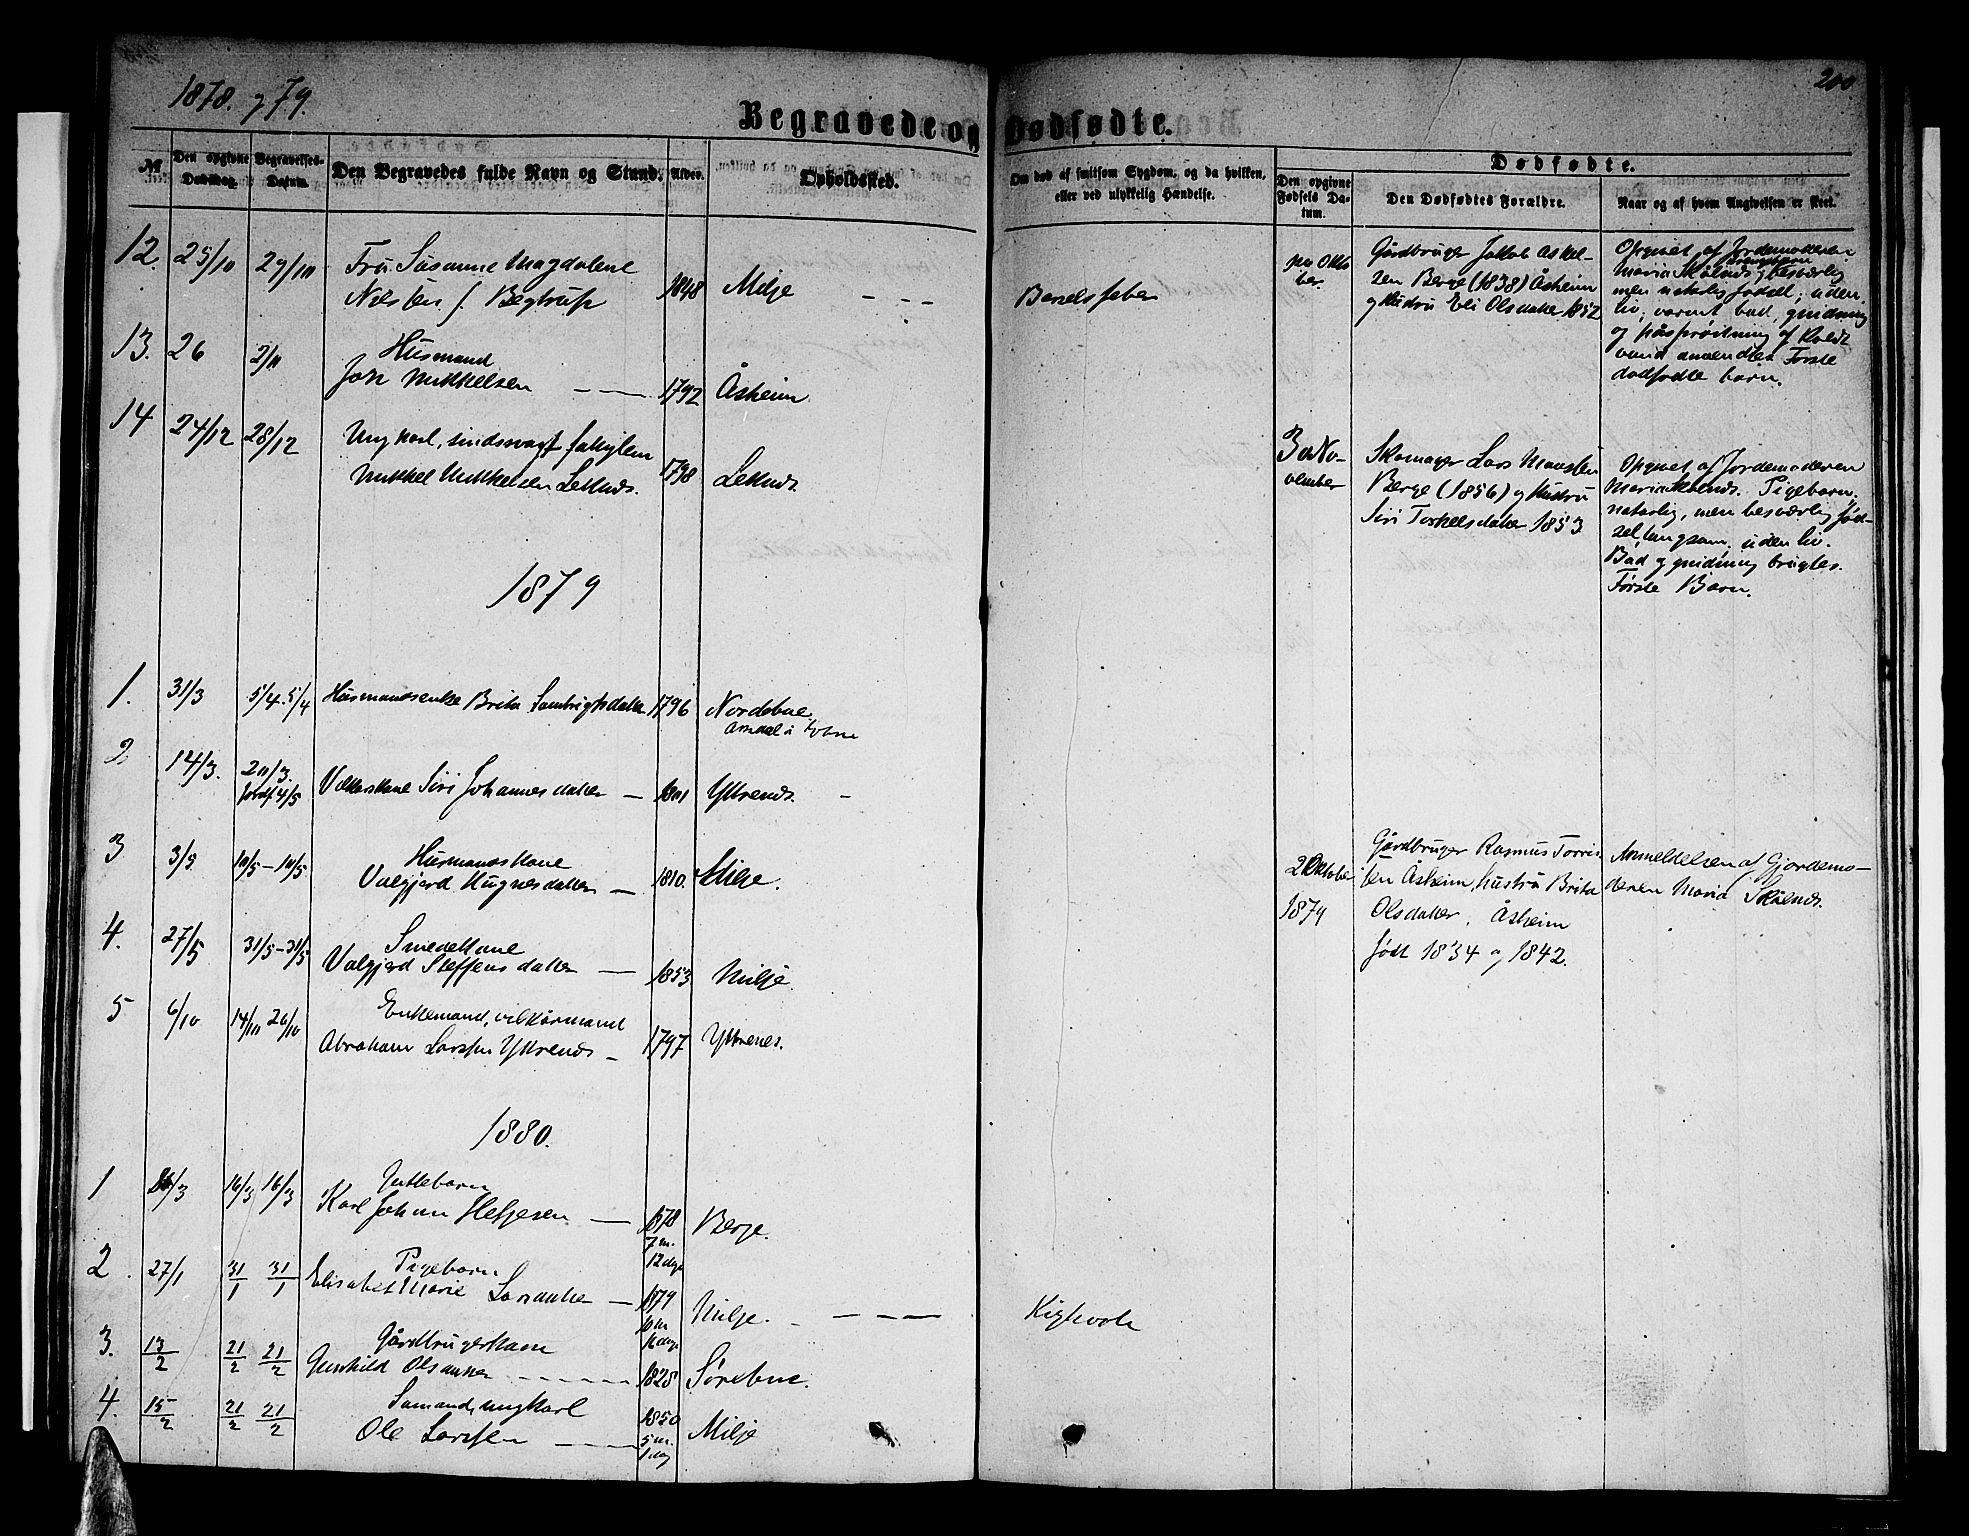 1878. og 79.
200
Begravede og Dødfødte.
№
Den opgivne Dødsdag.
Begravelses-Datum.
Den Begravedes fulde Navn og Stand.
Alder.
Opholdssted.
Om død af smitsom Sygdom, og da hvilken, eller ved ulykkelig Hændelse.
Dødfødte.
Den opgivne Fødsels Datum.
Den Dødfødtes Forældre.
Naar og af hvem Angivelsen er skeet.
12. 25/10 29/10 Fru Susanne Magdalene
Nielsen f. Begtrup 1848 Milje — — —
Barselsfeber
Gårdbruger Jakob Askel-
sen Berge (1838) Åsheim
og Hustru Eli Olsdatter 1852
Opgivet af Jordemoderen
Maria Skålnæs, besværlig
men naturlig fødsel; uden
liv; varmt bad, gnidning
og påsprøitning af koldt
vand anvendtes. Første
dødfødte barn.
13. 26 2/11 Husmand
Joh Mikkelsen — — 1792 Åsheim
14 24/12 28/12 Ungkarl, sindssvagt fattiglem
Mikkel Mikkelsen Leknæs. 1798 Leknæs.
3 No-
vember
Skomager Lars Monsen
Berge (1856) og Hustru
Siri Torkelsdatter 1853
Opgivet af Jordemoderen
Maria Skålnæs. Pigebarn.
naturlig, men besværlig fød-
sel, langsom, uden liv.
Bad og gnidning brugtes.
Første Barn.
1879
1. 31/3 5/4. 5/4 Husmandsenke Brita datter 1796 Nordebue
2 14/3. 20/3.
4/5 Vilkårskone Siri Johannesdatter — 1801 Yttrenæs. -
3 3/5 10/5 – 10/5 Husmandskone
Valgjerd Hugnesdatter — 1810. Milje.
2 Oktober
1879
Gårdbruger Rasmus Torris-
sen Åsheim, hustru Brita
Olsdatter, Åsheim
født 1834 og 1842.
Anmeldelsen af Gjordemo-
deren Maria Skålnæs.
4. 27/5 31/5 – 31/5 Smedekone
Valgjerd Steffensdatter — 1853 Milje.
5 6/10 14/10 20/10 Enkemand, vilkårmand
Abraham Larsen Yttrenæs — 1797 Yttrenes.
1880.
1 /3 16/3 16/3 Guttebarn
Karl Johan Helgesen — 1878
7 m.
12 dage Berge.
2. 27/1 31/1 31/1 Pigebarn
Elisabet Marie Larsdatter — 1879
10 m
16 dage Milje. — — —
Kighoste
3. 13/2 21/2 21/2 Gårdbrugerkone
Gunhild Olsdatter — — — 1825 Sørebue.
4. 15/2 21/2 21/2 Sømand, ungkarl
Ole Larssen — — 1850
5 m.
1 dag Milje